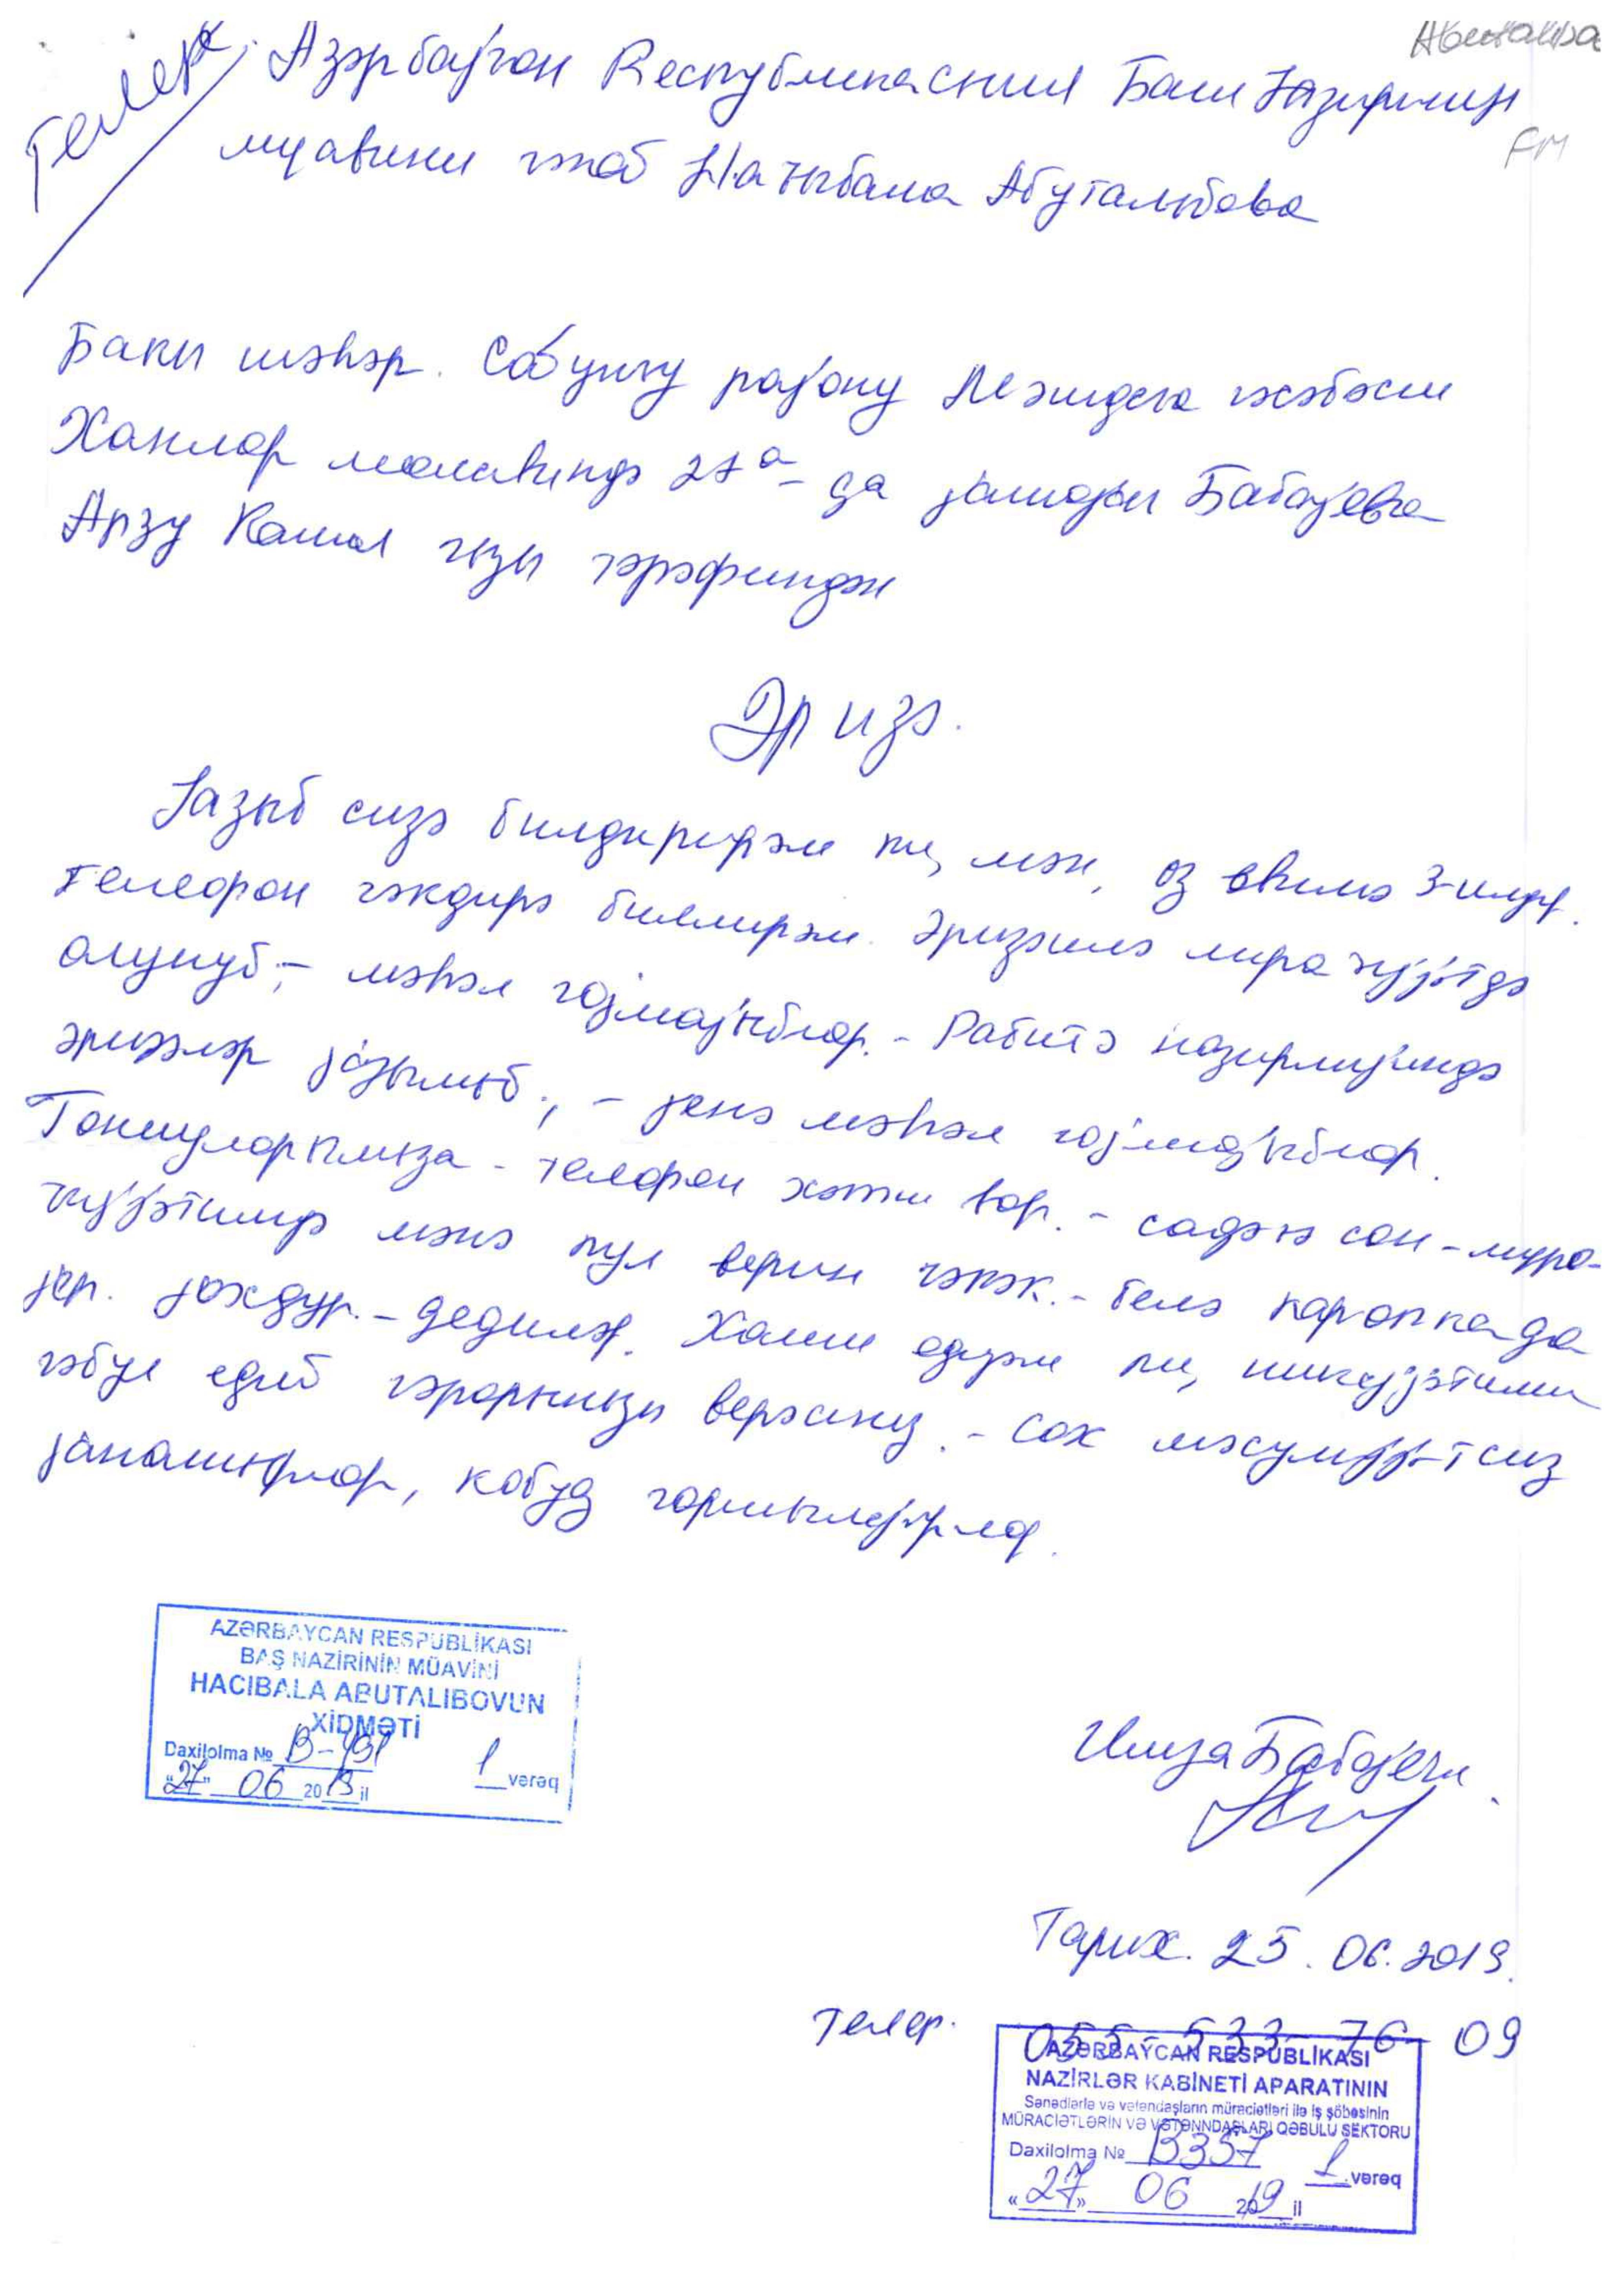 Азәрбајҹан Республикасинин Баш Назиринин
муавини ҹәнаб Һаҹыбала Абуталыбова
Бакы шәһәр. Сабунчу рајону Мәшдаға гәсәбәси
Ханлар мәһәлләсиндә 27а-да јашајан Бабајева
Арзу Камал гызы тәрәфиндән
Әризә.
Јазыб сизә билдирирәм ки, мән, өз евимә 3-илдир.
телефон чәкдирә билмирәм. Әризәилә мирачијәтдә
олунуб,- мәһәл гојмајыблар. - Рабитә назирлијиндә
әризәләр јазылыб, - јенә мәһәл гојмајыблар.
Гоншуларымыза - телефон хәтти вар. - садәҹә сон - мура-
ҹијәтимдә мәнә пул верин чәкәк. - белә каропкада
јер. јохдур. - дедиләр. Хаиш едирәм ки, шикајәтими
гәбул едиб гәрарынызы верәсиниз. - Чох мәсулијәтсиз
јанашырлар, кобуд гаршылајырлар.
AZƏRBAYCAN RESPUBLİKASI
BAŞ NAZİRİNİN MÜAVİNİ
HACIBALA ABUTALIBOVUN
XİDMƏTİ
Daxilolma № B-491 1 vərəq
"27" 06 2019 il
Имза Бабајева
Тарих. 25. 06. 2019.
Телеф. 055-533-76-09
AZƏRBAYCAN RESPUBLİKASI
NAZİRLƏR KABİNETİ APARATININ
Sənədlərlə və vətəndaşların müraciətləri ilə iş şöbəsinin
MÜRACİƏTLƏRİN VƏ VƏTƏNNDAŞLARI QƏBULU SEKTORU
Daxilolma № B357 1 vərəq
«27» 06 2019 il